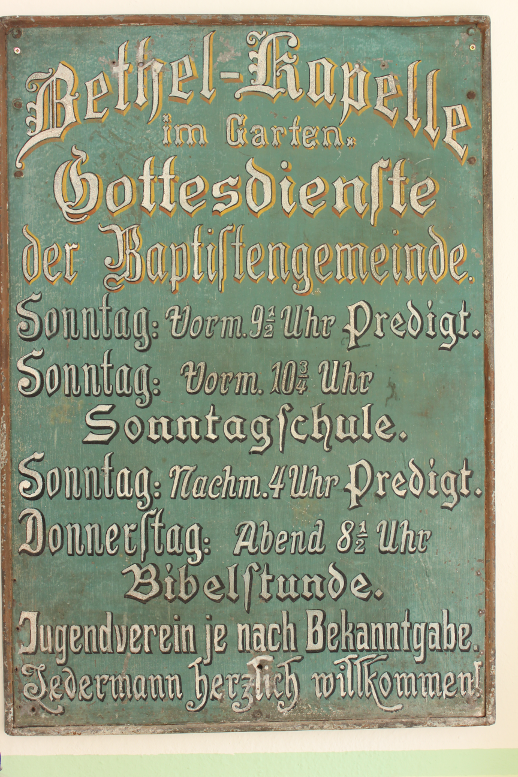 Bethel-Kapelle
im Garten.
Gottesdienſte
der Baptiſtengemeinde.
Sonntag: Vorm. 9½ Uhr Predigt.
Sonntag: Vorm. 10¾ Uhr
Sonntagſchule.
Sonntag: Nachm. 4 Uhr Predigt.
Donnerſtag: Abend 8½ Uhr
Bibelſtunde.
Jugendverein je nach Bekanntgabe.
Jedermann herzlich willkommen!